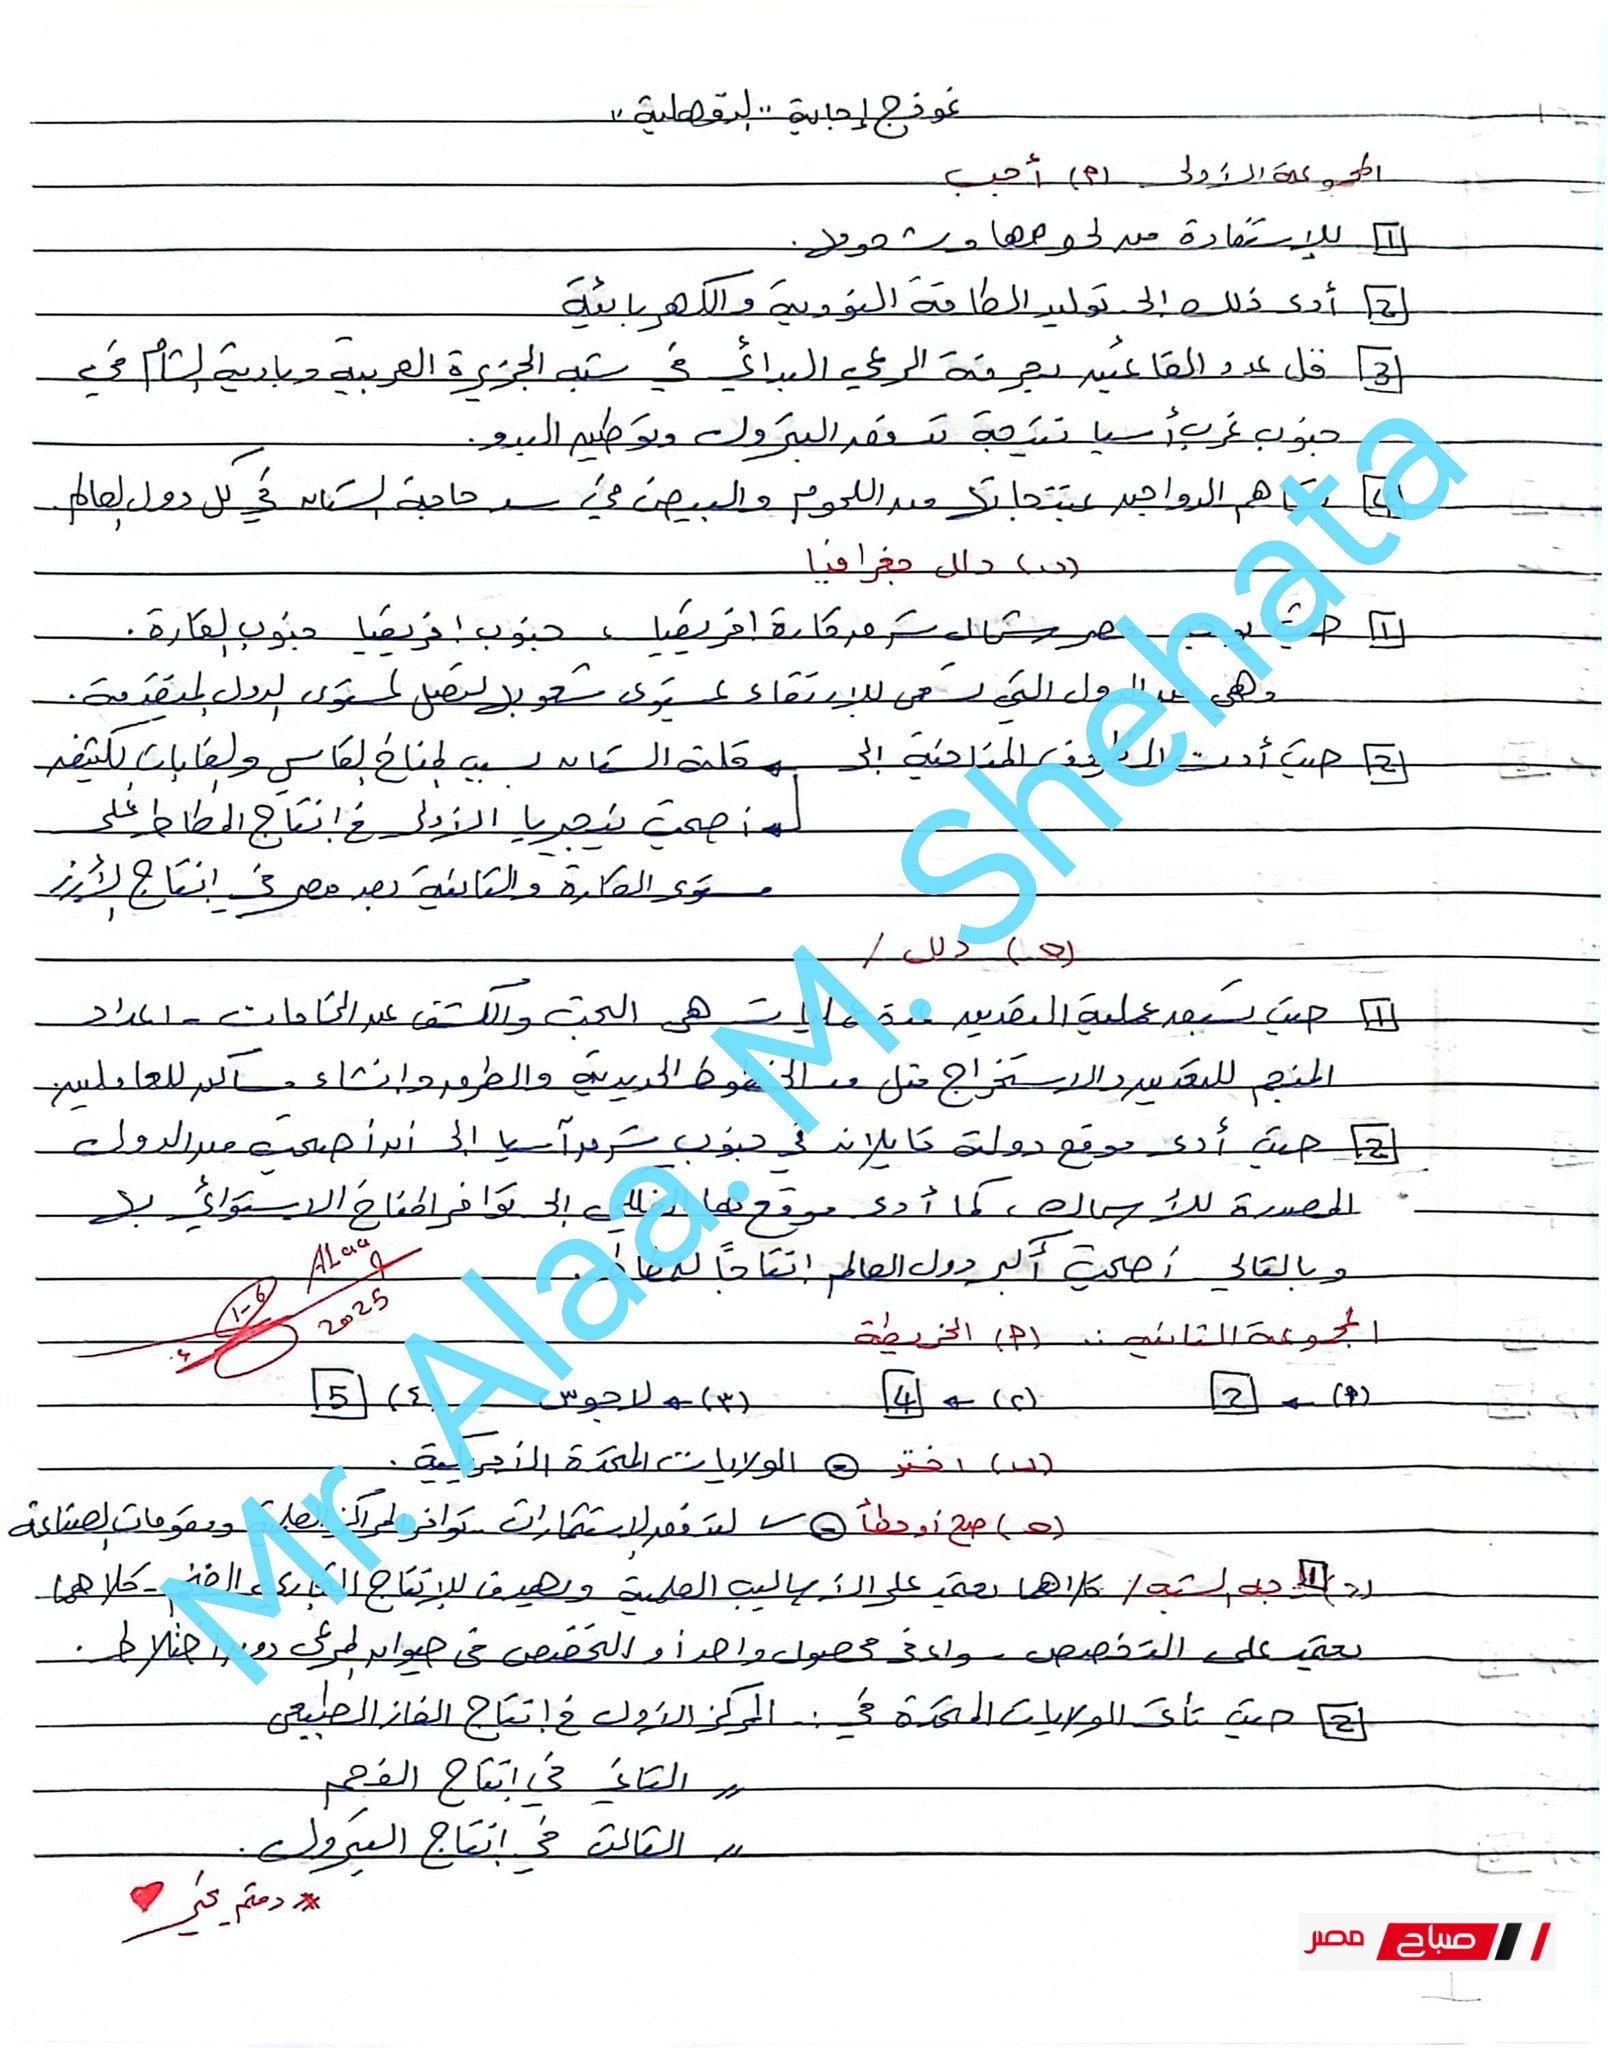 نموذج إجابة "الدقهلية"
المجموعة الأولى (أ) أجب
1 للإستفادة من لحومها وشحومها.
2 أدى ذلك إلى توليد الطاقة النووية والكهربائية
3 قل عدد القائمين بحرفة الرعي البدائي في شبه الجزيرة العربية وبادية الشام في
جنوب غرب أسيا نتيجة تدفق البترول وتوطين البدو.
4 تساهم الدواجن بمنتجاتها من اللحوم والبيض في سد حاجة السكان في كل دول العالم
(ب) دلل جغرافيا
1 حيث توجد مصر شمال شرق قارة افريقيا، جنوب افريقيا جنوب القارة.
وهي من الدول التي تسعى للإرتقاء بمستوى شعوبها لتصل لمستوى الدول المتقدمة.
2 حيث أدت الظروف المناخية إلى ← قلة السكان بسبب المناخ القاسي والغابات الكثيفة
← أصبحت نيجريا الأولى في انتاج المطاط على
مستوى القارة والثانية بعد مصر في إنتاج الأرز
(ج) دلل /
1 حيث يسبق عملية التعدين عدة عمليات هي البحث والكشف عن الخامات - اعداد
المنجم للتعدين والاستخراج مثل مد الخطوط الحديدية والطرق وانشاء مساكن للعاملين
2 حيث أدى موقع دولة تايلاند في جنوب شرق آسيا إلى أن أصبحت من الدول
المصدرة للأسماك، كما أدى موقعها الفلكي إلى توافر المناخ الاستوائي بها
وبالتالي أصبحت أكبر دول العالم إنتاجاً للمطاط.
Alaa
1-6
2025
المجموعة الثانية :. (أ) الخريطة
(1) ← 2 (٢) ← 4 (٣) ← لاجوس (٤) 5
(ب) اختر الولايات المتحدة الأمريكية.
(ج) صح أو خطأ لتدفق الإستثمارات - توافر المراكز العلمية ومقومات الصناعة
(د) 1 وجه الشبه / كلاهما يعتمد على الأساليب العلمية ويهدف للإنتاج التجاري الضخم - كلاهما
يعتمد على التخصص سواء في محصول واحد أو التخصص في حيوان المرعى دون اختلاط.
2 حيث تأتي الولايات المتحدة في :. المركز الأول في إنتاج الغاز الطبيعي
〃 الثاني في إنتاج الفحم
〃 الثالث في إنتاج البترول.
* دمتم بخير
Mr. Alaa. M. Shehata
صباح مصر